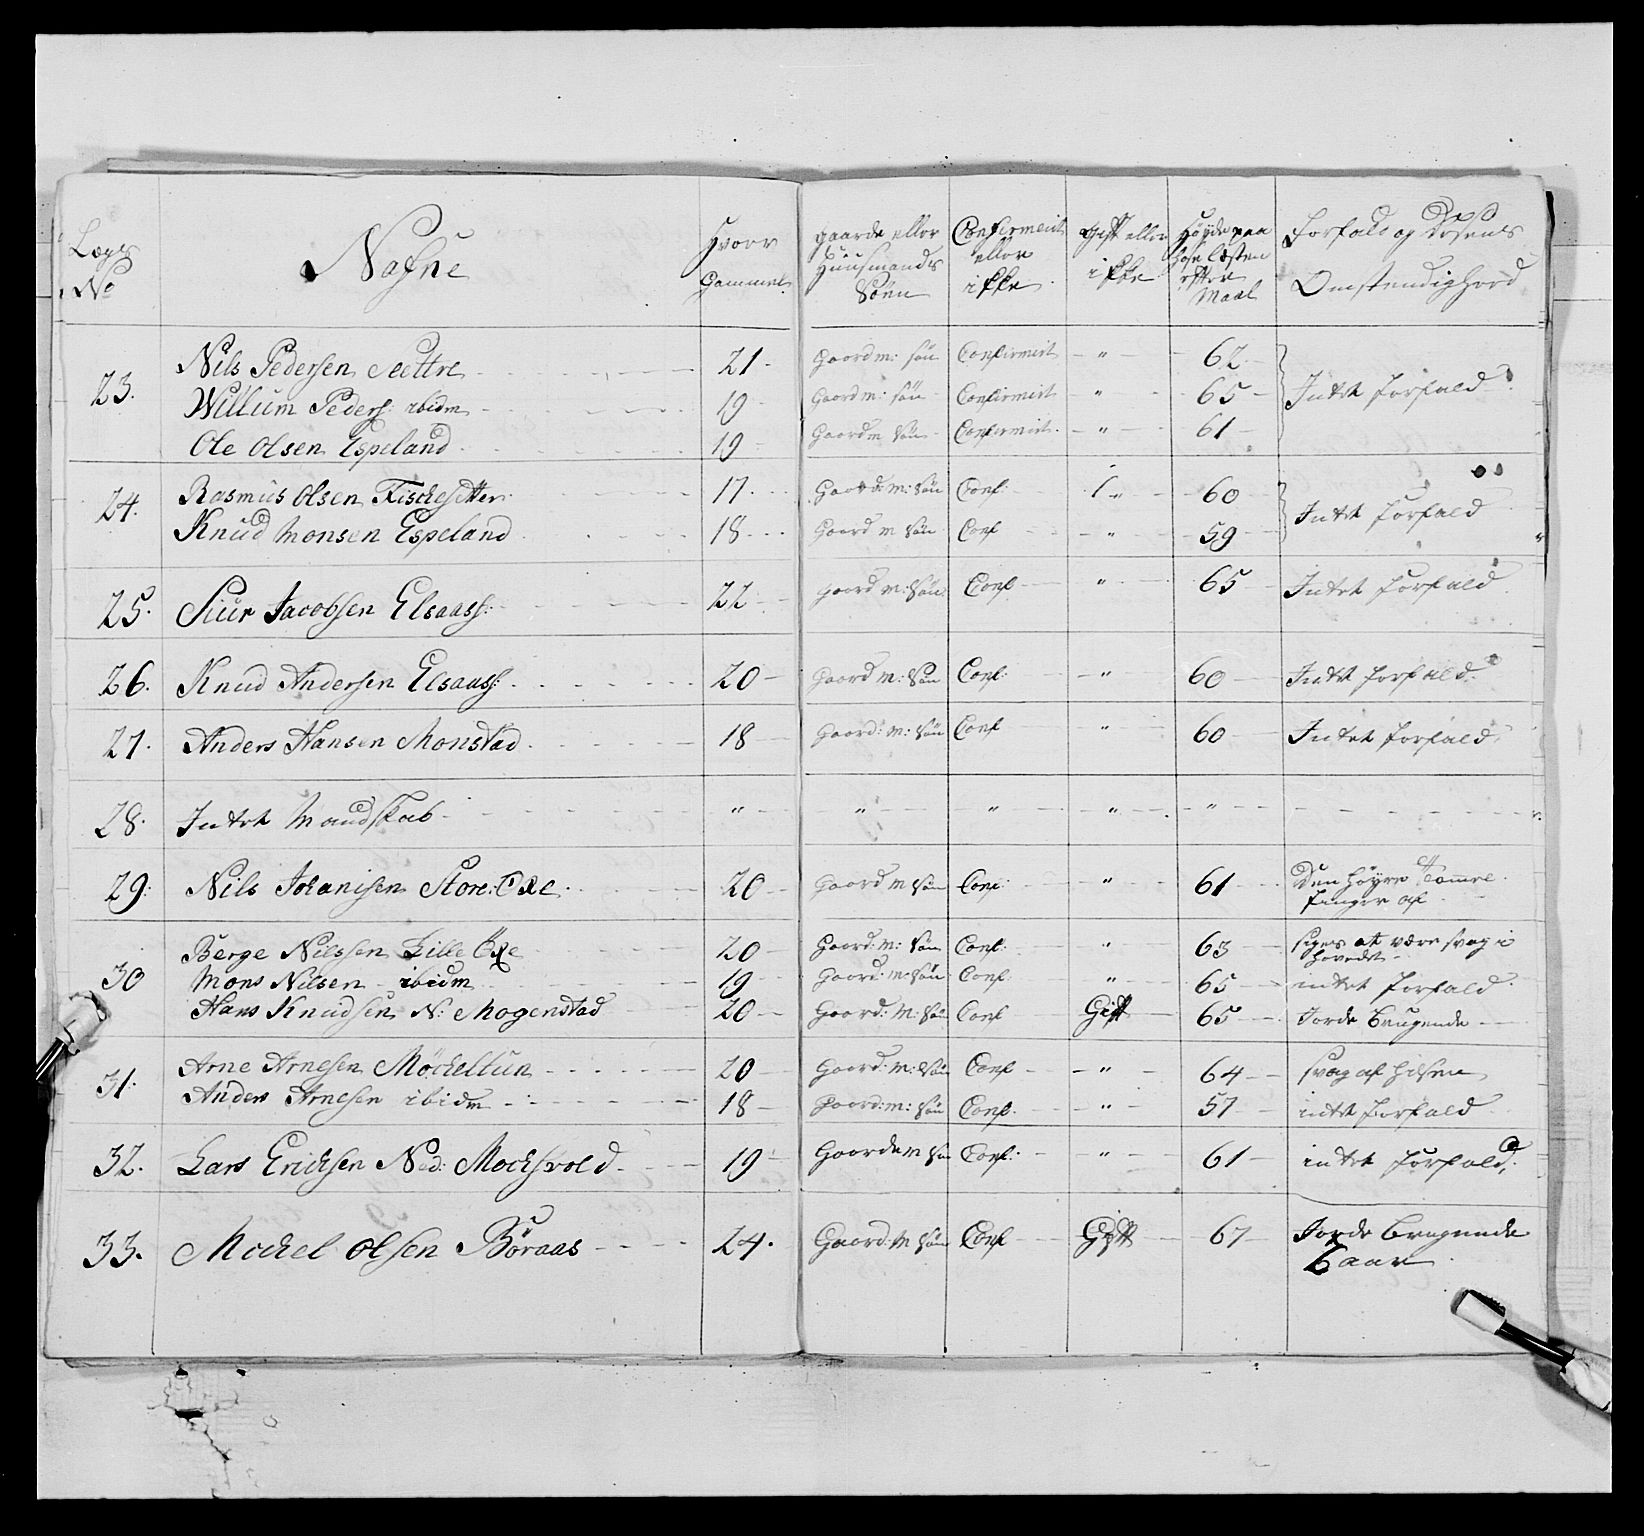 Lægs No | Nafne | Hvoor Gammel | gaarde eller Huusmands Søn | Confirmeret eller ikke | Gift eller ikke | Høyde paa Hose læsten efter Maal | Forfald og Desens Omstendighed
23. | Nils Pedersen Sættre | 21 | Gaord m: søn | Confirmert | " | 62 | Intet forfald
Willum Peders: ibidm | 19 | Gaord m: søn | Confirmert | " | 65
Ole Olsen Espeland | 19 | Gaord m søn | Confirmert | " | 61
24. | Rasmus Olsen Fischesetter | 17 | Gaord m: søn | Conf: | " | 60 | Intet forfald
Knud Monsen Espeland | 18 | Gaord m søn | Conf | " | 59
25. | Siur Jacobsen Elsaass: | 22 | gaord m: søn | Conf | " | 65 | Intet forfald
26. | Knud Andersen Elsaass: | 20 | Gaord m: søn | Conf: | " | 60 | Intet forfald
27. | Anders Hansen Monstad | 18 | Gaord: m: søn | Conf | " | 60 | Intet forfald
28. | Intet Mandskab | " | " | " | " | "
29: | Nils Johanisen Store: Oxe | 20 | Gaord m søn | Conf: | " | 61 | Den høyre Tommel finger af
30 | Berge Nilssen Lille Øxe | 20 | Gaord: m: søn | Conf: | " | 63 | siges at være svag i hovedet
Mons Nilsen ibidm | 19 | Gaord: m: søn | Conf: | " | 65 | intet forfald
Hans Knudsen N: Mogenstad | 20 | Gaord: m: søn | Conf | Gift | 65 | Jorde Brugende
31: | Arne Arnesen Möckeltun | 20 | Gaord: m: søn | Conf | " | 64 | svag af helsen
Anders Arnesen ibidm | 18 | Gaord: m: søn | Conf: | " | 57 | intet forfald
32. | Lars Ericksen Ned: Mocksvold | 19 | Gaorde m søn | Conf: | " | 61 | intet forfald:
33. | Mickel Olsen Böraas | 24. | Gaord: m søn | Conf | Gift | 67 | Jorde Brugende
6 aar